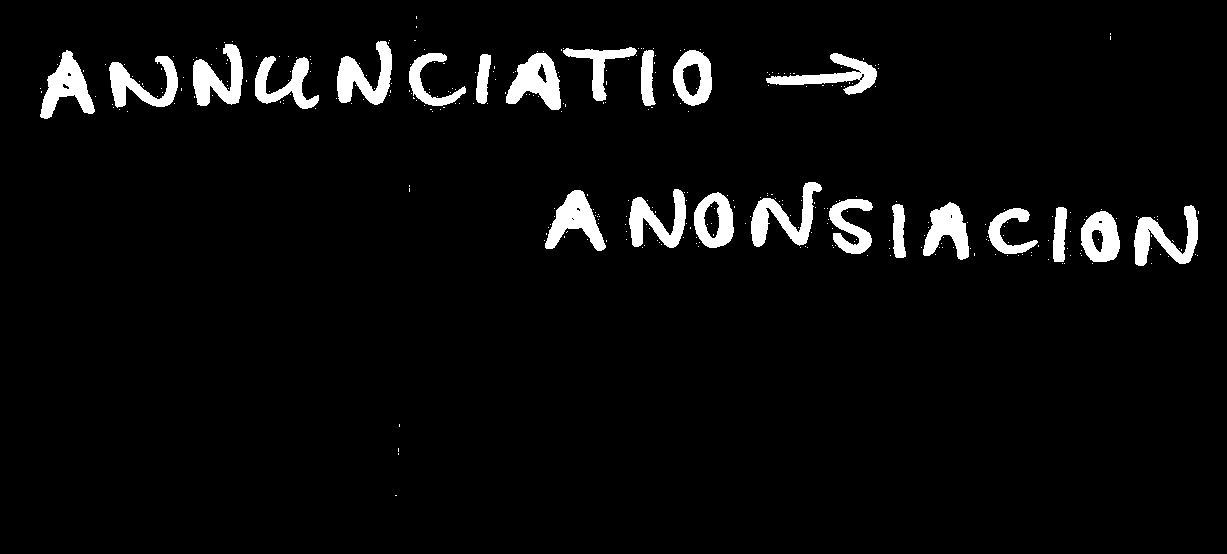 ANNUNCIATIO →
ANONSIACION